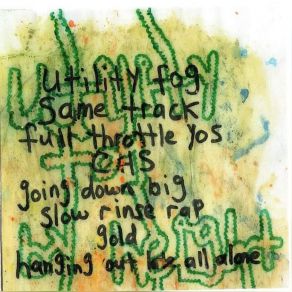 utility fog
same track
full throttle yos
CHS
going down big
slow rinse rap
gold
hanging out is all alone